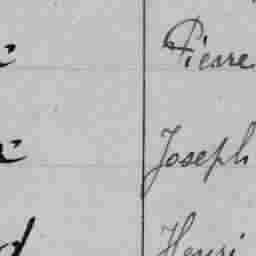 Pierre
Joseph
Henri